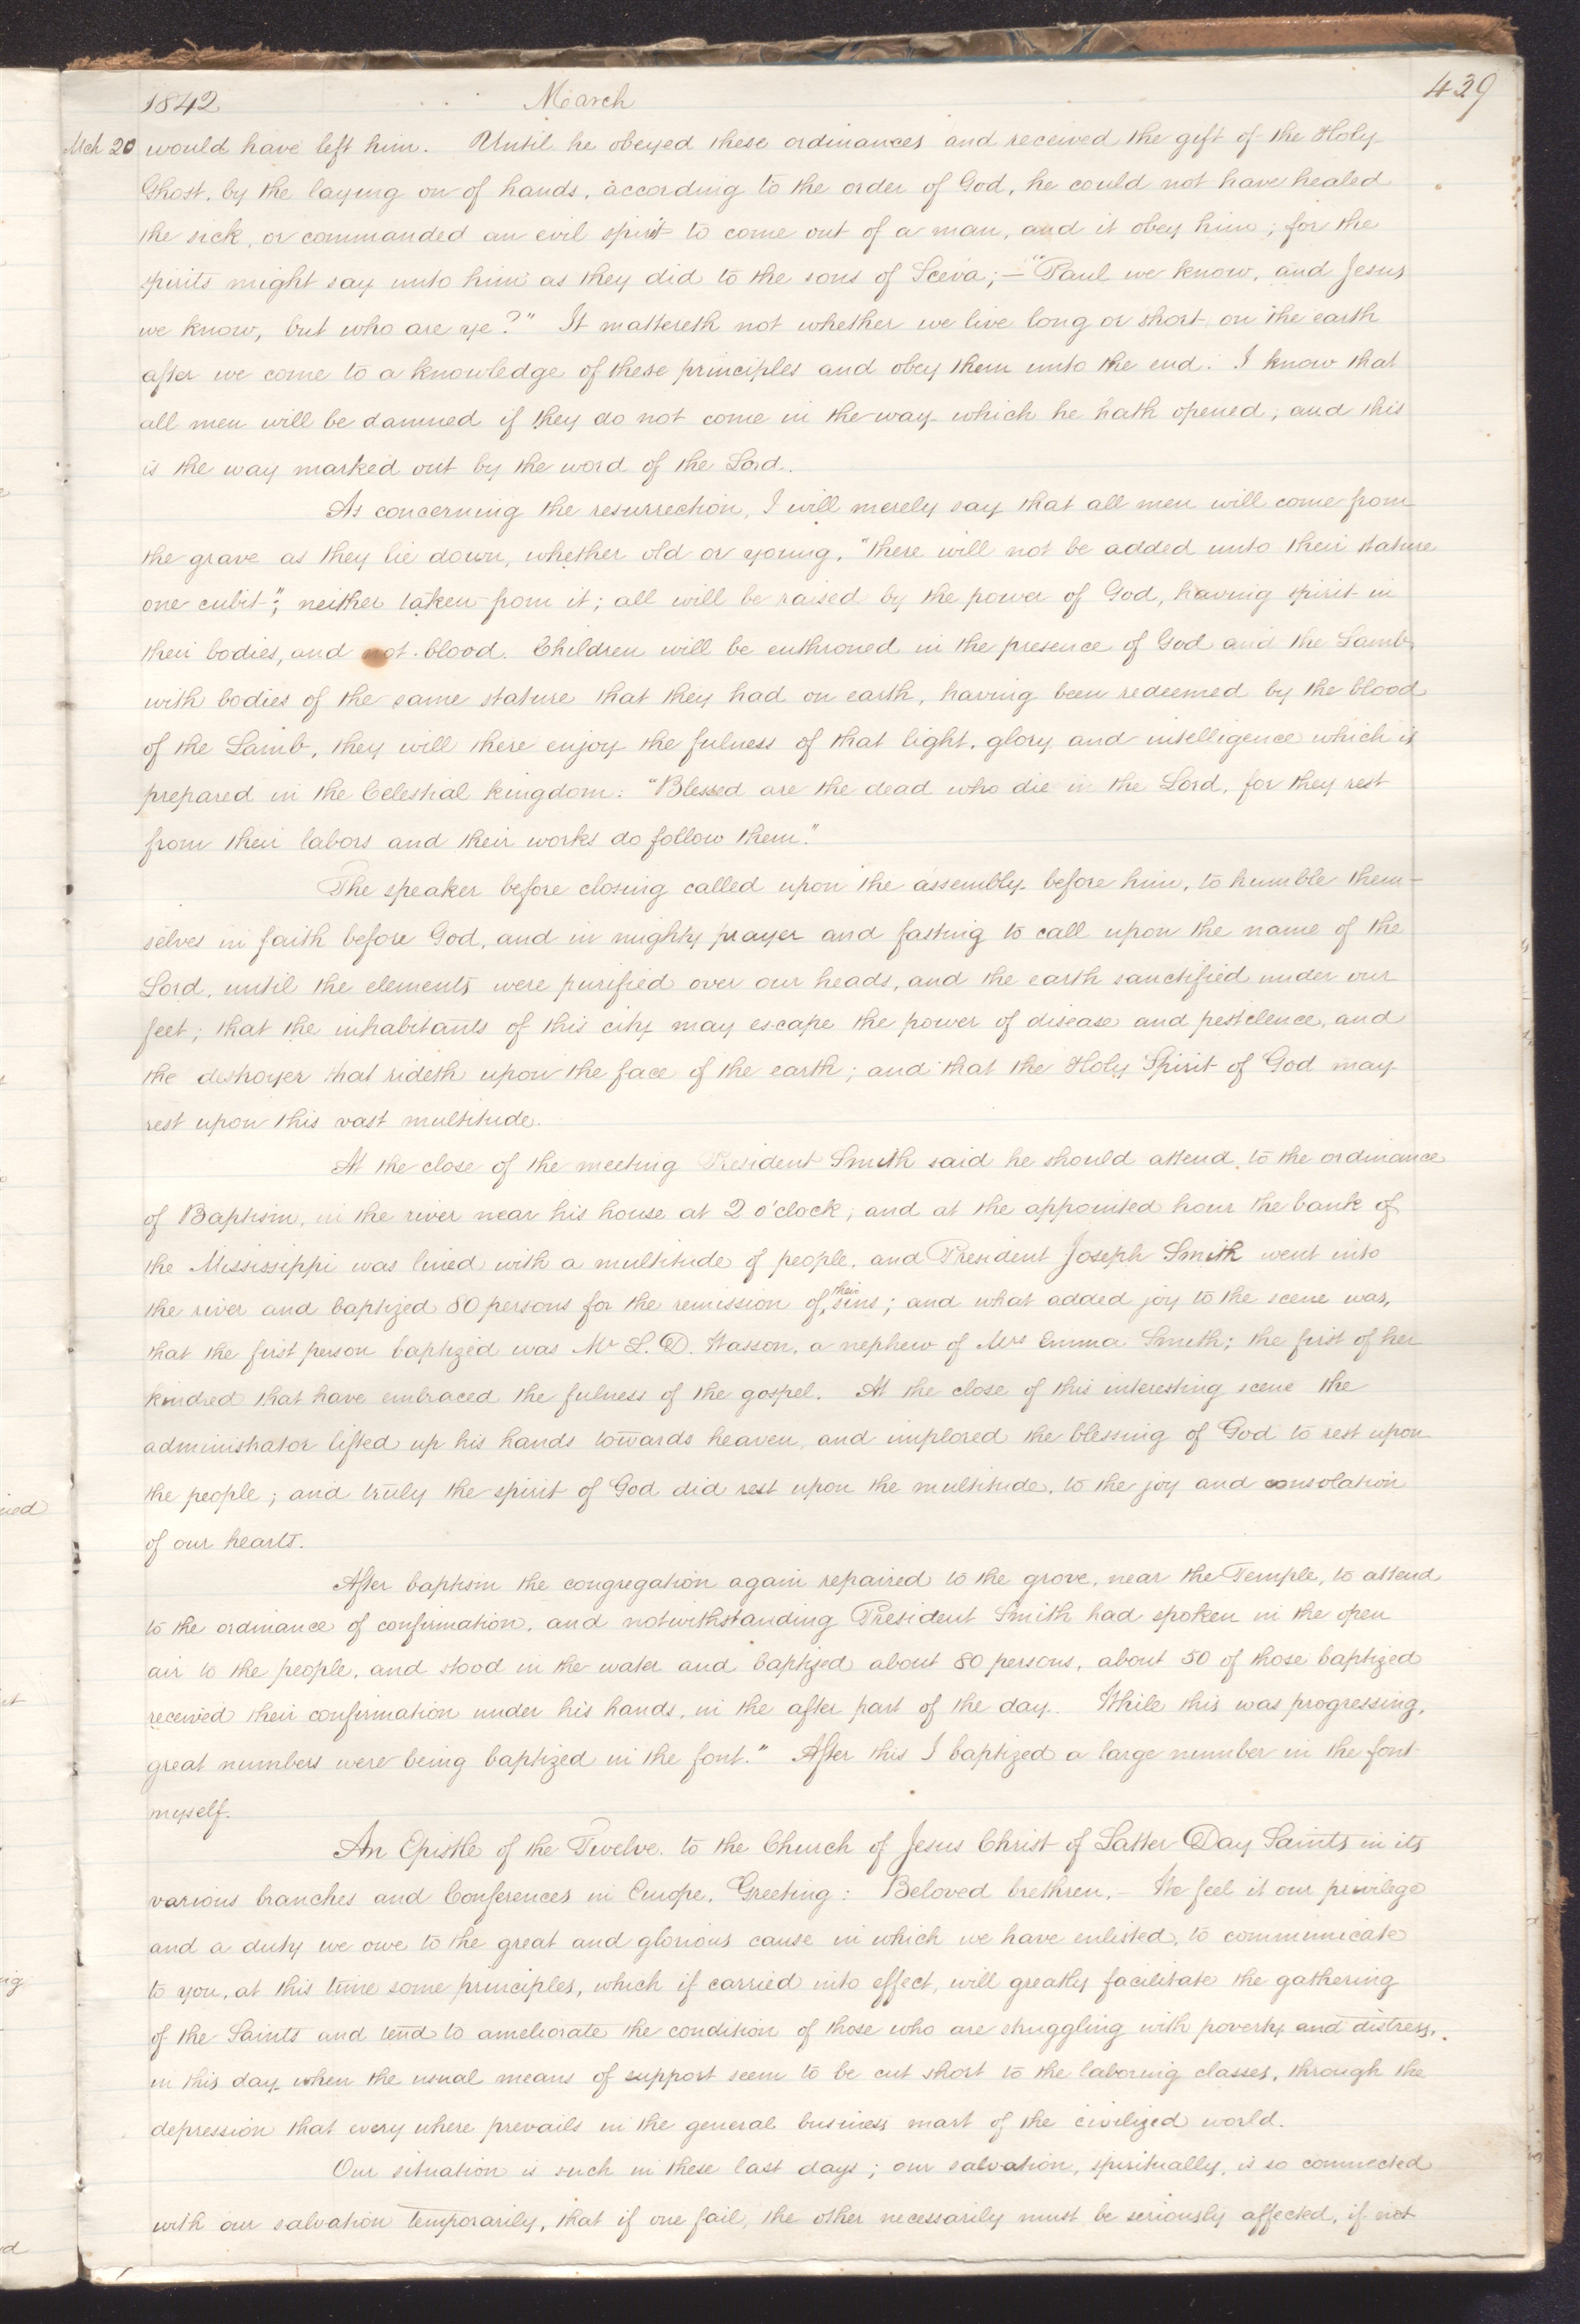 1842 March 429
Mch 20 would have left him. Until he obeyed these ordinances and received the gift of the Holy
Ghost, by the laying on of hands, according to the order of God, he could not have healed
the sick, or commanded an evil spirit to come out of a man, and it obey him; for the
spirits might say unto him as they did to the sons of Sceva; — "Paul we know, and Jesus
we know, but who are ye?" It mattereth not whether we live long or short on the earth
after we come to a knowledge of these principles and obey them unto the end. I know that
all men will be damned if they do not come in the way which he hath opened; and this
is the way marked out by the word of the Lord.
As concerning the resurrection, I will merely say that all men will come from
the grave as they lie down, whether old or young, "there will not be added unto their stature
one cubit"; neither taken from it; all will be raised by the power of God, having spirit in
their bodies, and not blood. Children will be enthroned in the presence of God and the Lamb
with bodies of the same stature that they had on earth, having been redeemed by the blood
of the Lamb, they will there enjoy the fulness of that light, glory and intelligence which is
prepared in the Celestial kingdom: "Blessed are the dead who die in the Lord, for they rest
from their labors and their works do follow them."
The speaker before closing called upon the assembly before him, to humble them-
selves in faith before God, and in mighty prayer and fasting to call upon the name of the
Lord, until the elements were purified over our heads, and the earth sanctified under our
feet; that the inhabitants of this city may escape the power of disease and pestilence, and
the destroyer that rideth upon the face of the earth; and that the Holy Spirit of God may
rest upon this vast multitude.
At the close of the meeting President Smith said he should attend to the ordinance
of Baptism, in the river near his house at 2 o'clock; and at the appointed hour the bank of
the Mississippi was lined with a multitude of people, and President Joseph Smith went into
the river and baptized 80 persons for the remission of their sins; and what added joy to the scene was,
that the first person baptized was Mr L. D. Wasson, a nephew of Mrs Emma Smith; the first of her
kindred that have embraced the fulness of the gospel. At the close of this interesting scene the
administrator lifted up his hands towards heaven, and implored the blessing of God to rest upon
the people; and truly the spirit of God did rest upon the multitude, to the joy and consolation
of our hearts.
After baptism the congregation again repaired to the grove, near the Temple, to attend
to the ordinance of confirmation, and notwithstanding President Smith had spoken in the open
air to the people, and stood in the water and baptized about 80 persons, about 50 of those baptized
received their confirmation under his hands, in the after part of the day. While this was progressing,
great numbers were being baptized in the font." After this I baptized a large number in the font
myself.
An Epistle of the Twelve to the Church of Jesus Christ of Latter Day Saints in its
various branches and Conferences in Europe, Greeting: Beloved brethren, — We feel it our privilege
and a duty we owe to the great and glorious cause in which we have enlisted, to communicate
to you, at this time some principles, which if carried into effect, will greatly facilitate the gathering
of the Saints and tend to ameliorate the condition of those who are struggling with poverty and distress,
in this day when the usual means of support seem to be cut short to the laboring classes, through the
depression that every where prevails in the general business mart of the civilized world.
Our situation is such in these last days; our salvation, spiritually, is so connected
with our salvation temporarily, that if one fail, the other necessarily must be seriously affected, if not